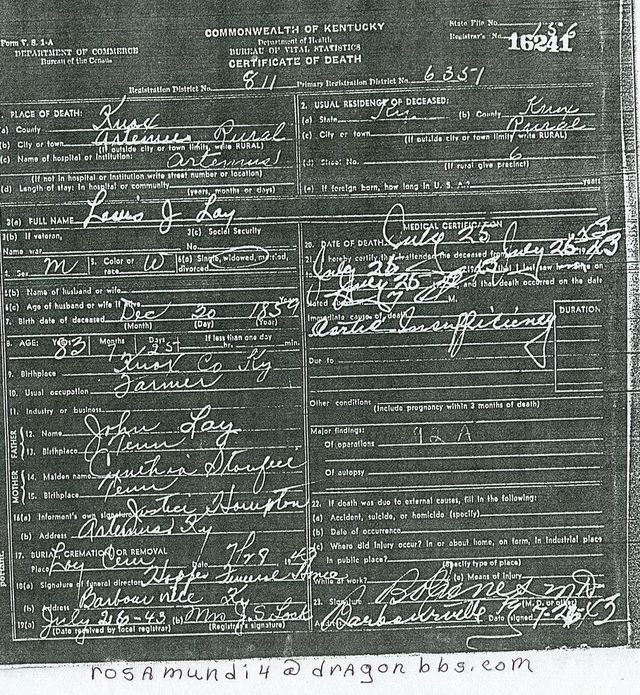 Form V. S. 1-A
DEPARTMENT OF COMMERCE
Bureau of the Census
COMMONWEALTH OF KENTUCKY
Department of Health
BUREAU OF VITAL STATISTICS
CERTIFICATE OF DEATH
State File No.
Registrar's No. 656
16241
Registration District No. 811 Primary Registration District No. 6351
1. PLACE OF DEATH:
(a) County Knox
(b) City or town Artemus Rural
(If outside city or town limits, write RURAL)
(c) Name of hospital or institution: Artemus
(If not in hospital or institution write street number or location)
(d) Length of stay: In hospital or community (years, months or days)
2. USUAL RESIDENCE OF DECEASED:
(a) State Ky (b) County Knox
(c) City or town Rural
(If outside city or town limits write RURAL)
(d) Street No. 6
(If rural give precinct)
(e) If foreign born, how long in U. S. A.? years
3(a) FULL NAME Lewis J Lay
3(b) If veteran,
Name war
3(c) Social Security
No.
4. Sex M 5. Color or race W 6(a) Single, widowed, married, divorced
6(b) Name of husband or wife
6(c) Age of husband or wife if alive Years
7. Birth date of deceased Dec 20 1859
(Month) (Day) (Year)
8. AGE: Years 83 Months 7 Days 25 If less than one day hr. min.
9. Birthplace Knox Co Ky
10. Usual occupation Farmer
11. Industry or business
FATHER
12. Name John Lay
13. Birthplace Tenn
MOTHER
14. Maiden name Cynthia
15. Birthplace Tenn
16(a) Informant's own signature Hampton
(b) Address Artemus Ky
17. BURIAL, CREMATION OR REMOVAL
Place Lay Cem Date 7/28 1943
18(a) Signature of funeral director Hopper Funeral Home
(b) Address Barbourville Ky
19(a) July 26-43 (b) Mrs J. S. Lock
(Date received by local registrar) (Registrar's signature)
MEDICAL CERTIFICATION
20. DATE OF DEATH July 25 1943
21. I hereby certify that I attended the deceased from July 25 1943
July 25 1943 that I last saw him on
July 25 and that death occurred on the date
stated M.
Immediate cause of death
Aortic Insufficiency
DURATION
Due to
Other conditions
(Include pregnancy within 3 months of death)
Major findings:
Of operations 92A
Of autopsy
22. If death was due to external causes, fill in the following:
(a) Accident, suicide, or homicide (specify)
(b) Date of occurrence
(c) Where did injury occur? In or about home, on farm, in industrial place
in public place?
(Specify type of place)
While at work? (e) Means of injury
23. Signature M D
(M. D. or other)
Address Barbourville Ky Date signed 7-26-43
rosamundi4@dragonbbs.com